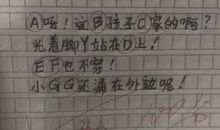 A呀!这B孩子C家的啊?
光着脚丫站在D上!
EF也不穿!
小GG还漏在外边呢!